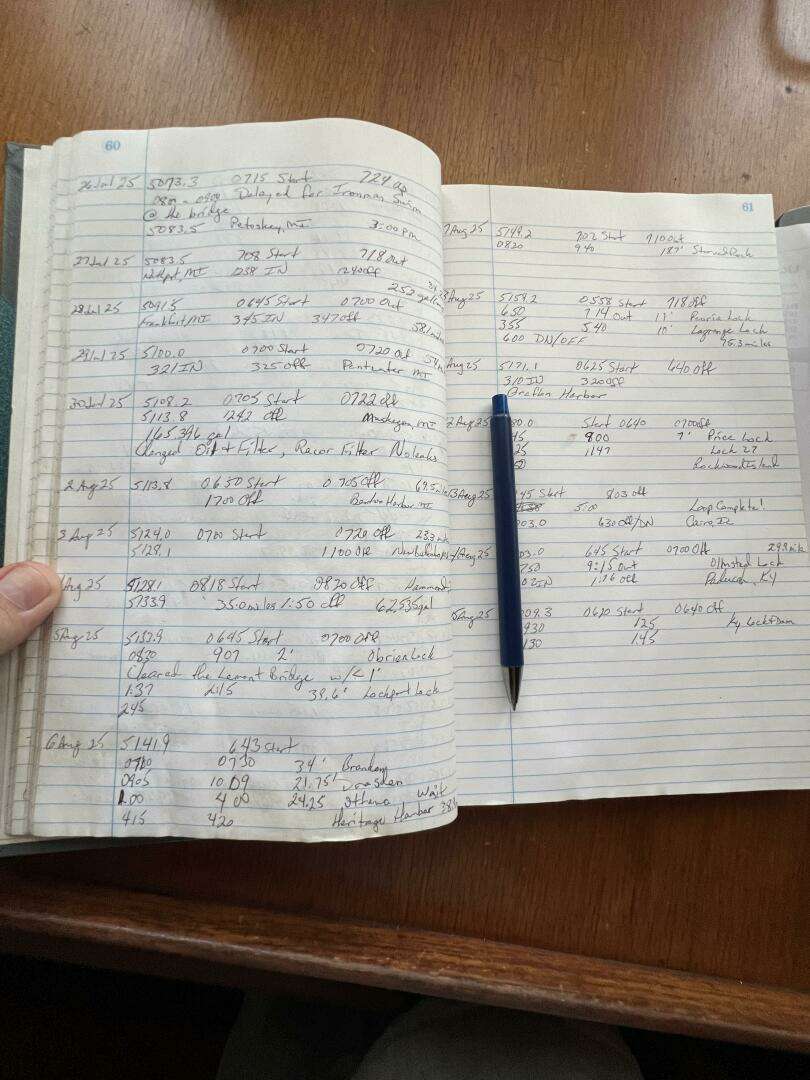 60
26 Jul 25 5073.3 0715 Start 724
0800 - 0900 Delayed for Ironman Swim
@ the bridge
5083.5 Petoskey, MI 3:00 pm
27 Jul 25 5083.5 708 Start 718 Out
MI 1238 IN 1240 Off
28 Jul 25 5091.5 0645 Start 0700 Out
Frankfort, MI 345 IN 347 Off
29 Jul 25 5100.0 0700 Start 0720 Out
321 IN 325 Off Pentwater MI
30 Jul 25 5108.2 0705 Start 0722 Off
5113.8 1242 Off Muskegon, MI
165.396 gal
Changed Oil & Filter, Racor Filter No leaks
2 Aug 25 5113.8 0650 Start 0705 Off
1700 Off Benton Harbor MI
3 Aug 25 5124.0 0700 Start 0720 Off
5128.1 1100 Off
Aug 25 5128.1 0818 Start 0820 Off Hammond
5133.9 35.0 miles 1:50 Off
5 Aug 25 5133.9 0645 Start 0700 Off
0830 907 2' Obrien Lock
Cleared the Lemont Bridge w/ < 1'
1:37 2:15 39.6' Lockport Lock
245
6 Aug 25 5141.9 643 Start
0730 34'
0905 1009 21.75'
1:00 4:00 24.25 Wait
415 420 Heritage Harbor
61
7 Aug 25 5149.2 702 Start 710 Out
0820 940 Starved Rock
Aug 25 5159.2 0558 Start 718 Off
650 714 Out 11' Peoria Lock
355 5:40 10' Lagrange Lock
600 DN/OFF 75.3 miles
Aug 25 5171.1 0625 Start 640 Off
310 IN 320 Off
Grafton Harbor
2 Aug 25 80.0 Start 0640 0700 Off
45 900 7' Price Lock
25 1147 Lock 27
Aug 25 45 Start 803 Off
5:00 Loop Complete!
03.0 630 Off/DN Cairo IL
Aug 25 03.0 645 Start 0700 Off
750 9:15 Out Olmsted Lock
IN 1:16 Off Paducah, KY
Aug 25 09.3 0620 Start 0640 Off
930 125 Ky Lock & Dam
130 145